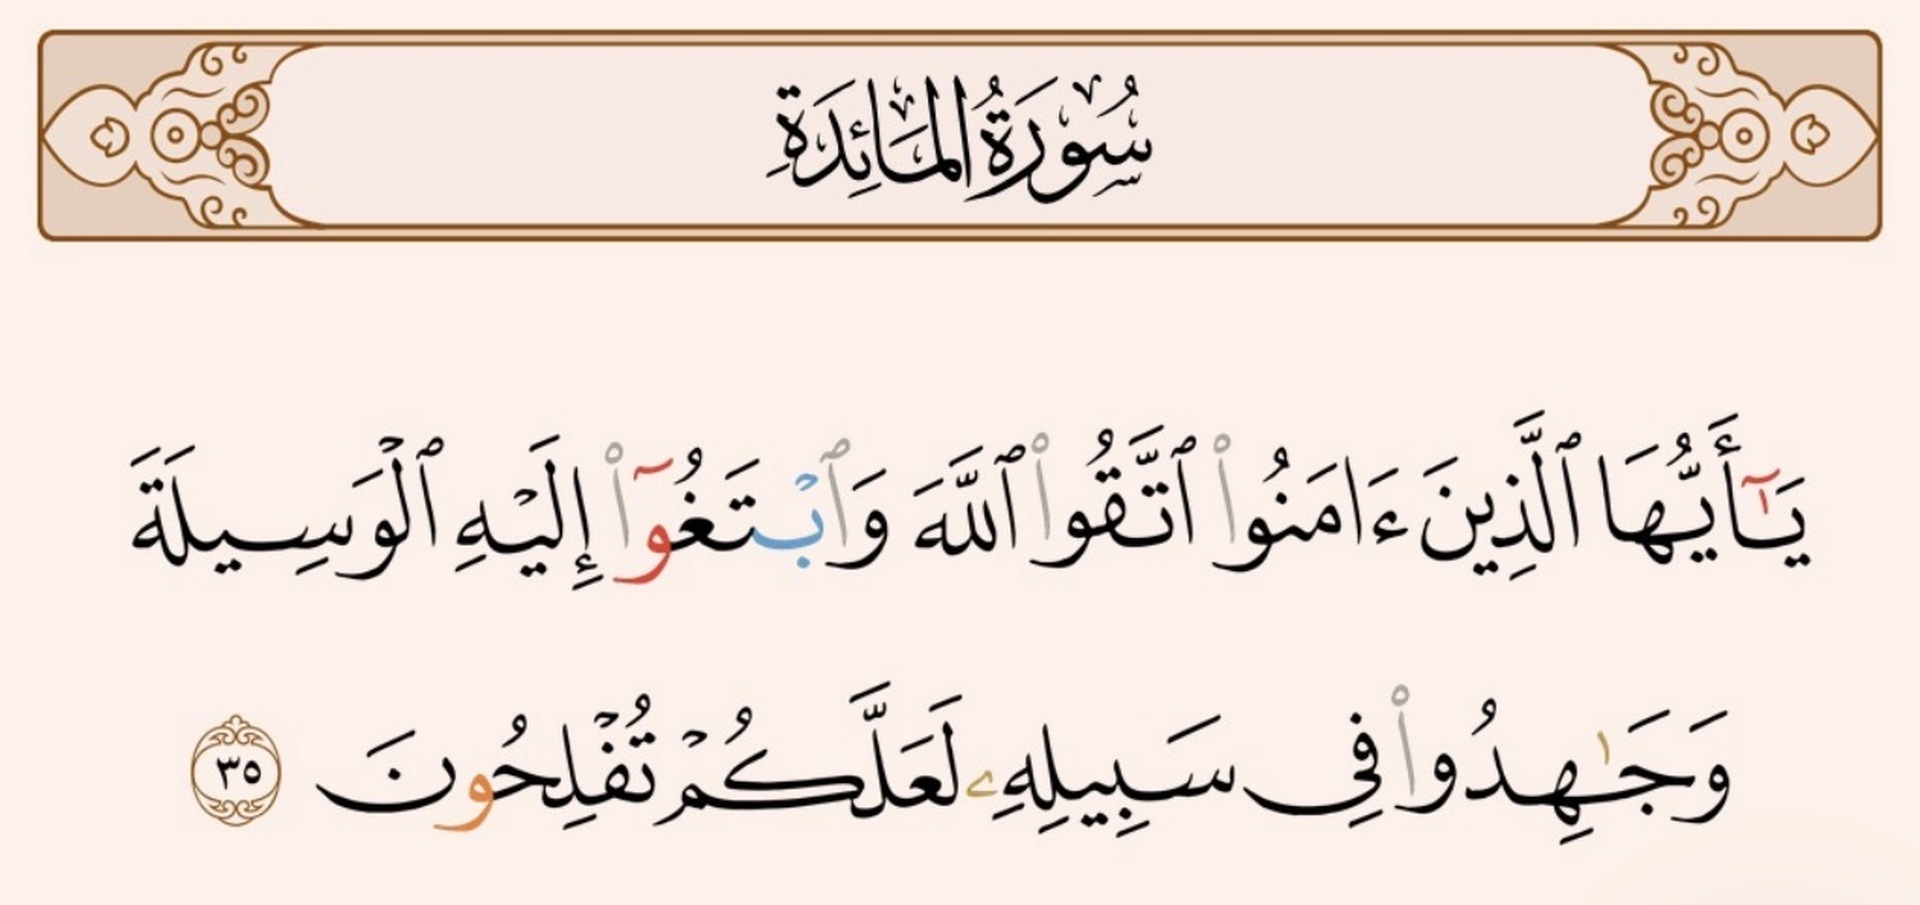 سُورَةُ المَائِدَةِ
يَـٰٓأَيُّهَا ٱلَّذِينَ ءَامَنُوا۟ ٱتَّقُوا۟ ٱللَّهَ وَٱبْتَغُوٓا۟ إِلَيْهِ ٱلْوَسِيلَةَ
وَجَـٰهِدُوا۟ فِى سَبِيلِهِۦ لَعَلَّكُمْ تُفْلِحُونَ ٣٥